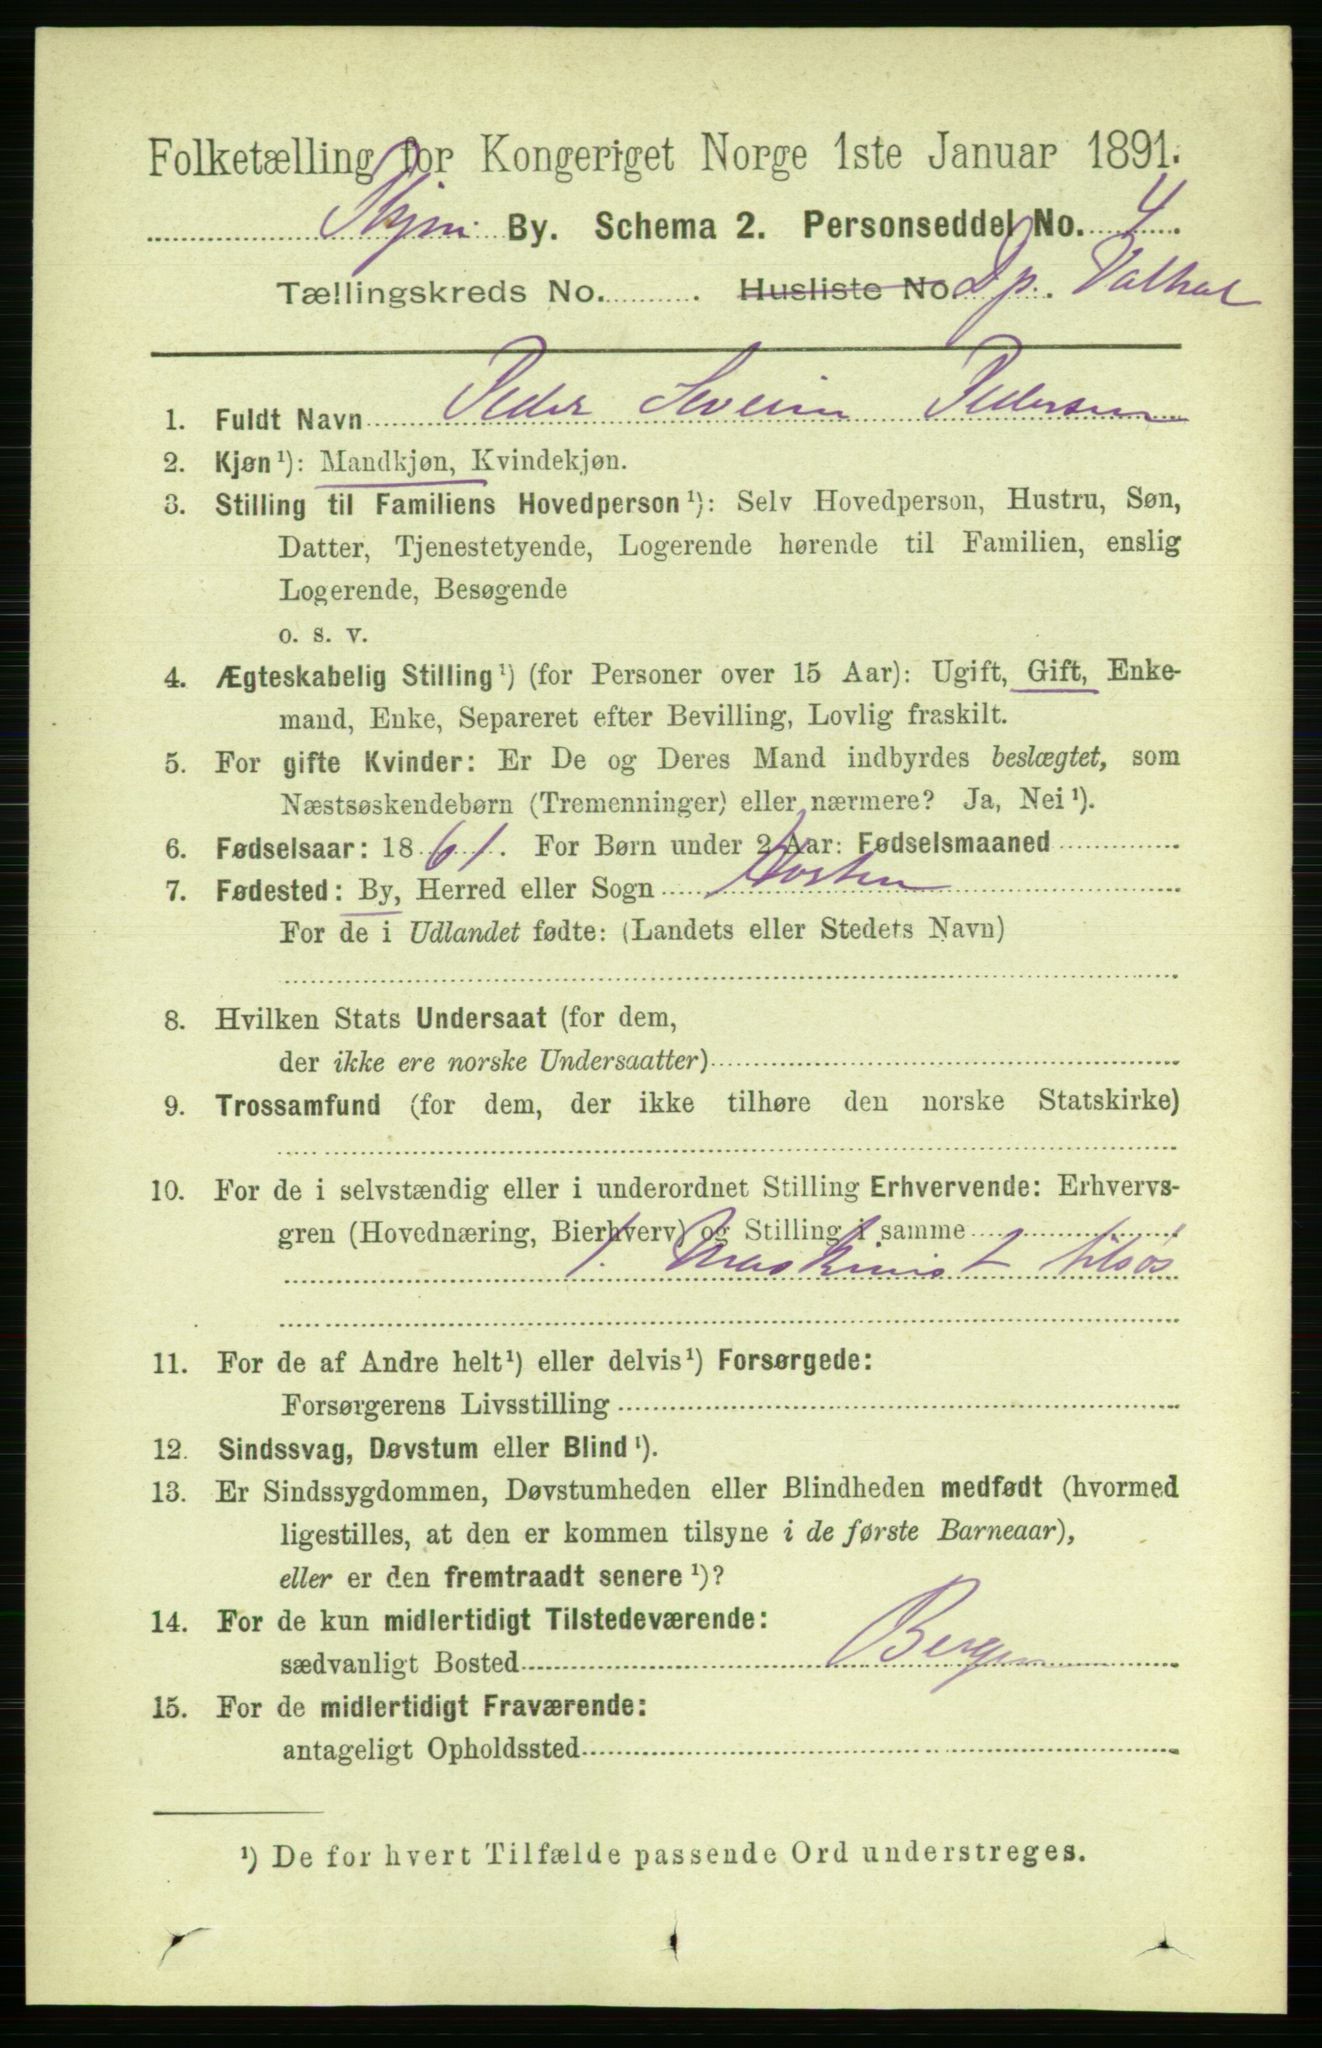 Folketælling for Kongeriget Norge 1ste Januar 1891.
By. Schema 2. Personseddel No. 4.
Tællingskreds No. . Husliste No Dp. Valhal
1. Fuldt Navn Peder Severin Pedersen
2. Kjøn¹): Mandkjøn, Kvindekjøn.
3. Stilling til Familiens Hovedperson¹): Selv Hovedperson, Hustru, Søn,
Datter, Tjenestetyende, Logerende hørende til Familien, enslig
Logerende, Besøgende
o. s. v.
4. Ægteskabelig Stilling¹) (for Personer over 15 Aar): Ugift, Gift, Enke-
mand, Enke, Separeret efter Bevilling, Lovlig fraskilt.
5. For gifte Kvinder: Er De og Deres Mand indbyrdes beslægtet, som
Næstsøskendebørn (Tremenninger) eller nærmere? Ja, Nei¹).
6. Fødselsaar: 1861. For Børn under 2 Aar: Fødselsmaaned
7. Fødested: By, Herred eller Sogn Horten
For de i Udlandet fødte: (Landets eller Stedets Navn)
8. Hvilken Stats Undersaat (for dem,
der ikke ere norske Undersaatter)
9. Trossamfund (for dem, der ikke tilhøre den norske Statskirke)
10. For de i selvstændig eller i underordnet Stilling Erhvervende: Erhvervs-
gren (Hovednæring, Bierhverv) og Stilling i samme
1. Maskinist tilsøs
11. For de af Andre helt¹) eller delvis¹) Forsørgede:
Forsørgerens Livsstilling
12. Sindssvag, Døvstum eller Blind¹).
13. Er Sindssygdommen, Døvstumheden eller Blindheden medfødt (hvormed
ligestilles, at den er kommen tilsyne i de første Barneaar),
eller er den fremtraadt senere¹)?
14. For de kun midlertidigt Tilstedeværende:
sædvanligt Bosted Bergen
15. For de midlertidigt Fraværende:
antageligt Opholdssted
¹) De for hvert Tilfælde passende Ord understreges.